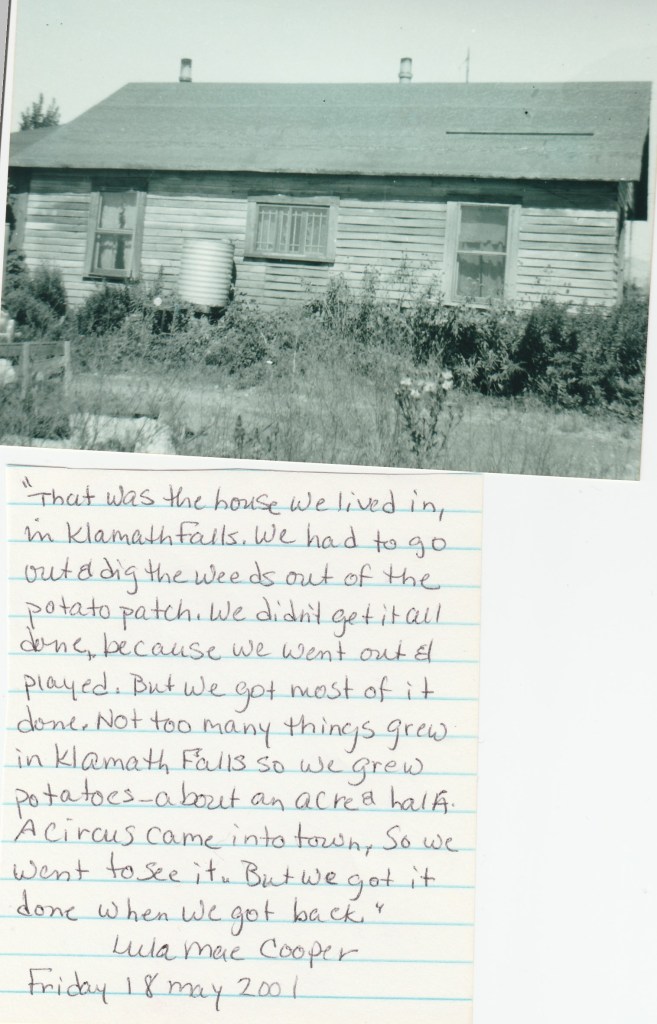 "That was the house we lived in,
in Klamath Falls. We had to go
out & dig the weeds out of the
potato patch. We didn't get it all
done, because we went out &
played. But we got most of it
done. Not too many things grew
in Klamath Falls so we grew
potatoes - about an acre & half.
A circus came into town, so we
went to see it. But we got it
done when we got back."
Lula Mae Cooper
Friday 18 May 2001